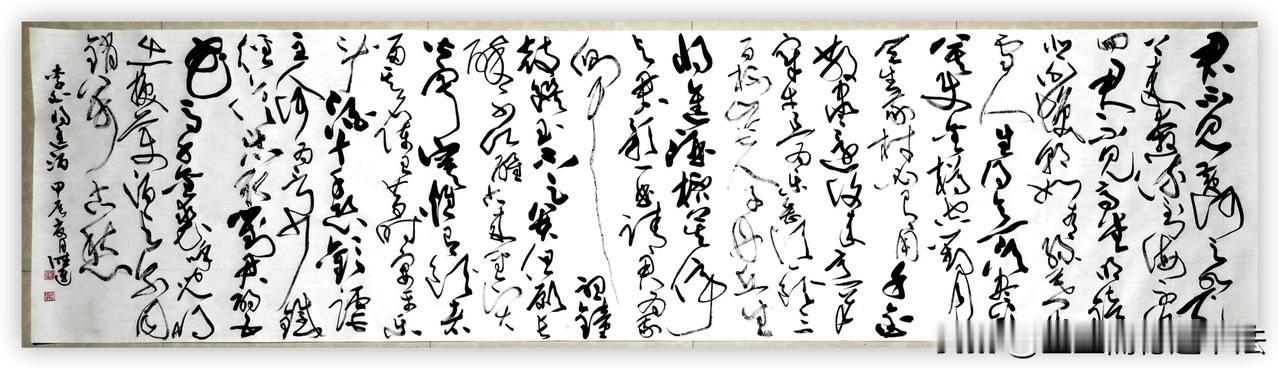 君不見黃河之水天
上來奔流到海不復
回君不見高堂明鏡
悲白髮朝如青絲暮成
雪人生得意須盡歡
莫使金樽空對月
天生我材必有用千金
散盡還復來烹羊
宰牛且為樂會須一飲三
百杯岑夫子丹丘生
將進酒杯莫停
與君歌一曲請君為我
傾耳聽鐘
鼓饌玉不足貴但願長
醉不願醒古來聖賢
皆寂寞惟有飲者
留其名陳王昔時宴平樂
斗酒十千恣歡謔
主人何為言少錢
徑須沽取對君酌五
花馬千金裘呼兒將
出換美酒與爾同
銷萬古愁
李白將進酒 甲辰夏月